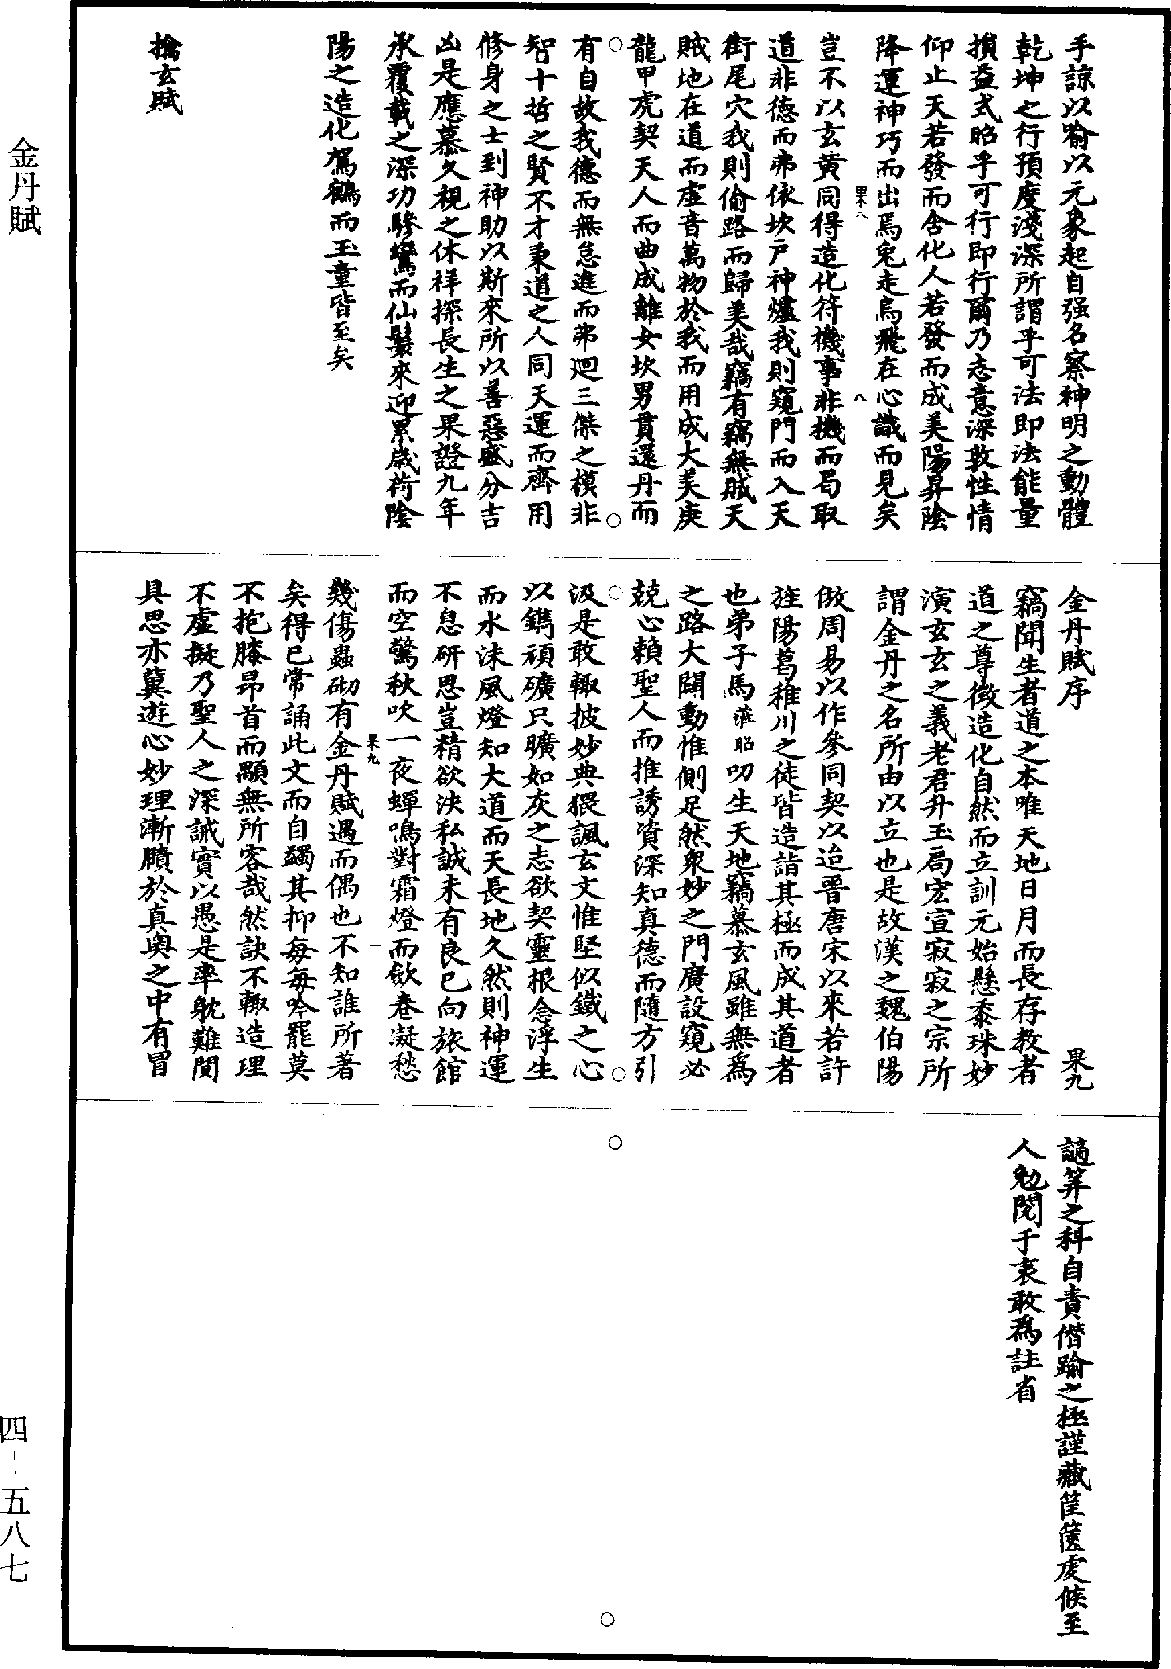 手諒以喻以元象起自强名察神明之動體
乾坤之行預度淺深所謂乎可法即法能量
損益式昭乎可行即行爾乃志意深敦性情
仰止天若發而含化人若發而成美陽昇陰
降運神巧而出焉兔走烏飛在心識而見矣
果八
八
豈不以玄黃同得造化符機事非機而局取
道非德而弗依坎戶神爐我則窺門而入天
街尾穴我則偷路而歸美哉竊有竊無賊天
賊地在道而虛音萬物於我而用成大美庚
龍甲虎契天人而曲成離女坎男貫還丹而
有自故我德而無怠進而弗迴三傑之模非
智十哲之賢不才秉道之人同天運而齊用
修身之士到神助以斯來所以善惡盛分吉
凶是應慕久視之休祥探長生之果證九年
承覆載之深功驂鸞而仙鬟來迎累歲荷陰
陽之造化駕鶴而玉童皆至矣
擒玄賦
金丹賦序
果九
竊聞生者道之本唯天地日月而長存教者
道之尊徵造化自然而立訓元始懸黍珠妙
演玄玄之義老君升玉局宏宣寂寂之宗所
謂金丹之名所由以立也是故漢之魏伯陽
倣周易以作參同契以迨晉唐宋以來若許
旌陽葛稚川之徒皆造詣其極而成其道者
也弟子馬蒞昭叨生天地竊慕玄風雖無為
之路大闢動惟側足然衆妙之門廣設窺必
兢心賴聖人而推誘資深知真德而隨方引
汲是敢輒披妙典猥諷玄文惟堅似鐵之心
以鐫頑礦只曠如灰之志欲契靈根念浮生
而水沫風燈知大道而天長地久然則神運
不息研思豈精欲泱私誠未有良已向旅館
而空驚秋吹一夜蟬鳴對霜燈而斂卷凝愁
幾傷蟲砌有金丹賦遇而偶也不知誰所著
果九
一
矣得已常誦此文而自蠲其抑每每吟罷莫
不抱膝昂首而顒無所容哉然訣不輒造理
不虛擬乃聖人之深誠實以愚是率躭難閴
具思亦冀遊心妙理漸賾於真奥之中有冒
謫筭之科自責僭踰之極謹藏筐篋虔候至
人勉閱于衷敢為註省
金丹賦
四--五八七